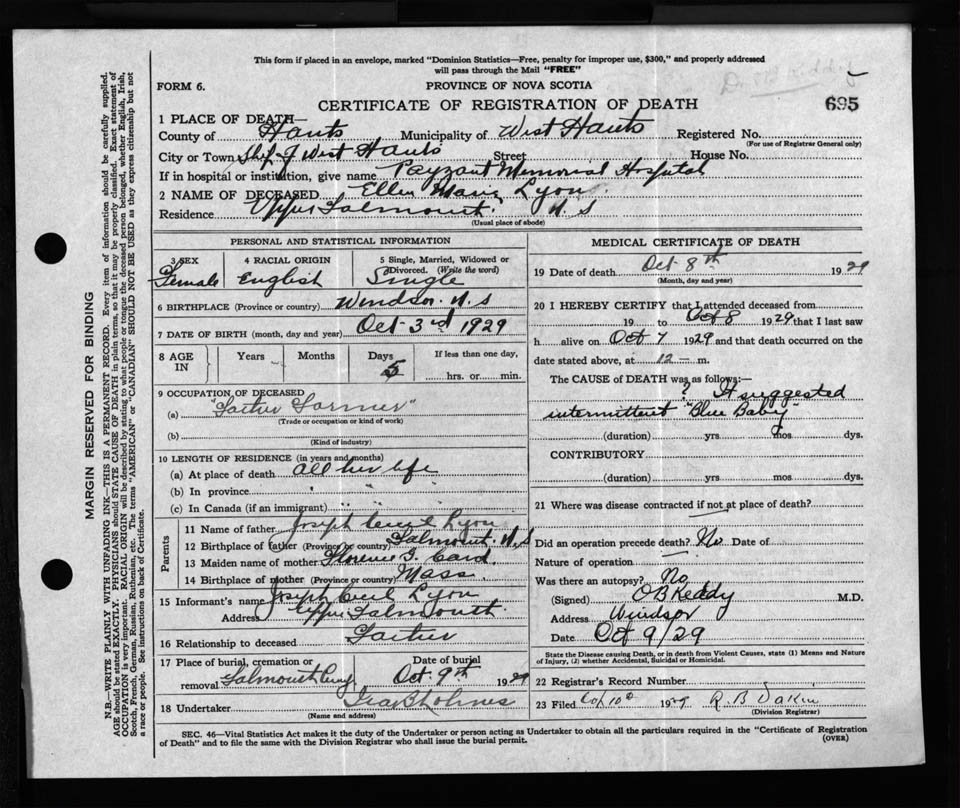 This form if placed in an envelope, marked "Dominion Statistics—Free, penalty for improper use, $300," and properly addressed
will pass through the Mail "FREE"
FORM 6. PROVINCE OF NOVA SCOTIA
CERTIFICATE OF REGISTRATION OF DEATH 695
1 PLACE OF DEATH—
County of Hants Municipality of West Hants Registered No.
(For use of Registrar General only)
City or Town West Hants Street House No.
If in hospital or institution, give name Payzant Memorial Hospital
2 NAME OF DECEASED Ellen Lyon
Residence Upper Falmouth. N. S
(Usual place of abode)
PERSONAL AND STATISTICAL INFORMATION
3 SEX 4 RACIAL ORIGIN 5 Single, Married, Widowed or
Divorced. (Write the word)
Female English Single
6 BIRTHPLACE (Province or country) Windsor. N. S
7 DATE OF BIRTH (month, day and year) Oct 3rd 1929
8 AGE IN Years Months Days If less than one day,
5 hrs. or min.
9 OCCUPATION OF DECEASED
(a) "Father Farmer"
(Trade or occupation or kind of work)
(b)
(Kind of industry)
10 LENGTH OF RESIDENCE (in years and months)
(a) At place of death all her life
(b) In province " "
(c) In Canada (if an immigrant) " "
Parents
11 Name of father Joseph Cecil Lyon
12 Birthplace of father (Province or country) Falmouth. N. S
13 Maiden name of mother Florence Card
14 Birthplace of mother (Province or country) Mass.
15 Informant's name Joseph Cecil Lyon
Address Upper Falmouth.
16 Relationship to deceased Father
17 Place of burial, cremation or Date of burial
removal Falmouth Oct. 9th 1929
18 Undertaker
(Name and address)
MEDICAL CERTIFICATE OF DEATH
19 Date of death Oct 8th 1929
(Month, day and year)
20 I HEREBY CERTIFY that I attended deceased from
19 to Oct 8 1929 that I last saw
h alive on Oct 7 1929 and that death occurred on the
date stated above, at 12 — m.
The CAUSE OF DEATH was as follows:—
? It suggested
intermittent "Blue Baby"
(duration) yrs mos dys.
CONTRIBUTORY
(duration) yrs mos dys.
21 Where was disease contracted if not at place of death?
Did an operation precede death? No Date of
Nature of operation
Was there an autopsy? No
(Signed) O B Keddy M.D.
Address Windsor
Date Oct 9/29
State the Disease causing Death, or in death from Violent Causes, state (1) Means and Nature
of Injury, (2) whether Accidental, Suicidal or Homicidal.
22 Registrar's Record Number
23 Filed Oct 10 1929 R. B Dakin
(Division Registrar)
SEC. 46—Vital Statistics Act makes it the duty of the Undertaker or person acting as Undertaker to obtain all the particulars required in the "Certificate of Registration
of Death" and to file the same with the Division Registrar who shall issue the burial permit. (OVER)
MARGIN RESERVED FOR BINDING
N.B.—WRITE PLAINLY WITH UNFADING INK—THIS IS A PERMANENT RECORD. Every item of information should be carefully supplied.
AGE should be stated EXACTLY. PHYSICIANS should STATE CAUSE OF DEATH in plain terms, so that it may be properly classified. Exact statement of
OCCUPATION is very important. RACIAL ORIGIN will be described by stating to what people or tongue the deceased person belonged, whether English, Irish,
Scotch, French, German, Russian, Ruthenian, etc. The terms "AMERICAN" or "CANADIAN" SHOULD NOT BE USED as they express citizenship but not
a race or people. See instructions on back of Certificate.